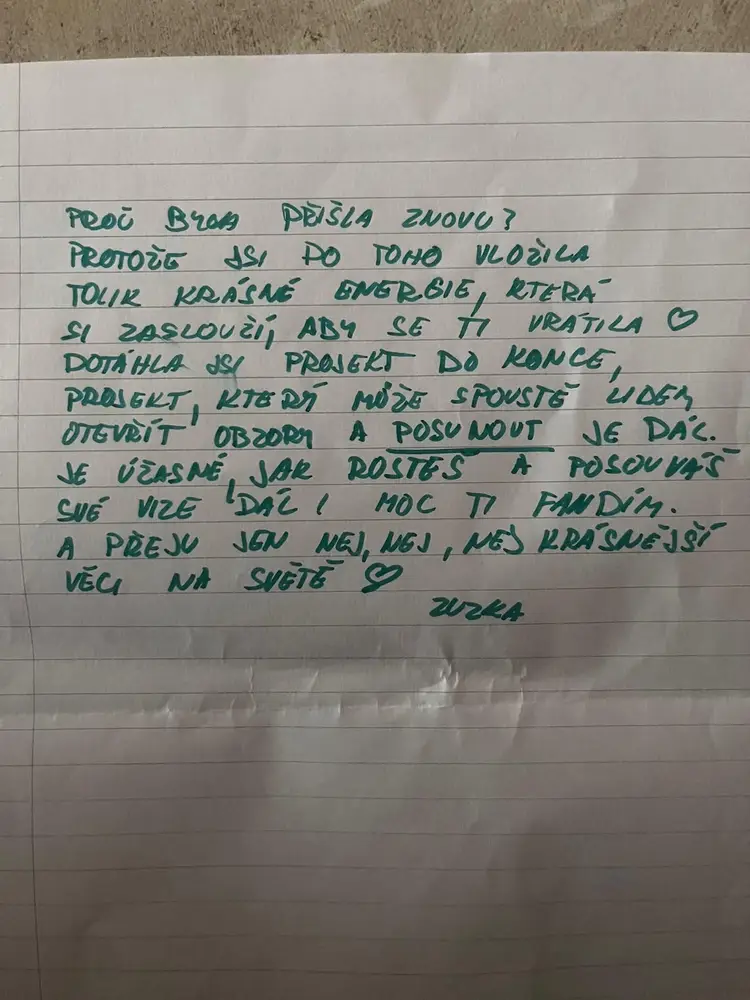 PROČ BYCH PŘIŠLA ZNOVU?
PROTOŽE JSI DO TOHO VLOŽILA
TOLIK KRÁSNÉ ENERGIE, KTERÁ
SI ZASLOUŽÍ, ABY SE TI VRÁTILA ♡
DOTÁHLA JSI PROJEKT DO KONCE,
PROJEKT, KTERÝ MŮŽE SPOUSTĚ LIDEM
OTEVŘÍT OBZORY A POSUNOUT JE DÁL.
JE ÚŽASNÉ, JAK ROSTEŠ A POSOUVÁŠ
SVÉ VIZE DÁL! MOC TI FANDÍM.
A PŘEJU JEN NEJ, NEJ, NEJKRÁSNĚJŠÍ
VĚCI NA SVĚTĚ ♡
ZUZKA